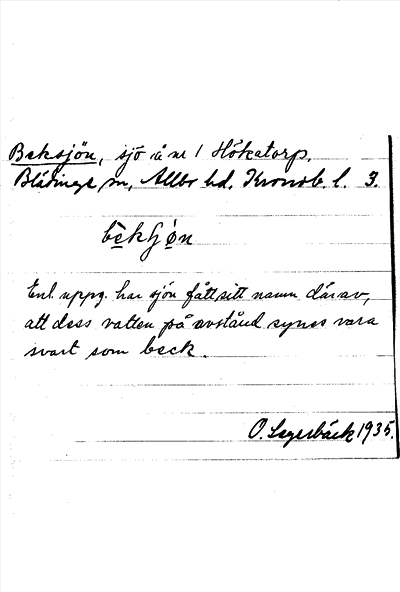 Beksjön, sjö å nr 1 Hökatorp.
Blädinge sn, Allbo hd. Kronob. l. 3.
bèkʃø̀n
Enl. uppg. har sjön fått sitt namn därav,
att dess vatten på avstånd synes vara
svart som beck.
O. Lagerbäck 1935.